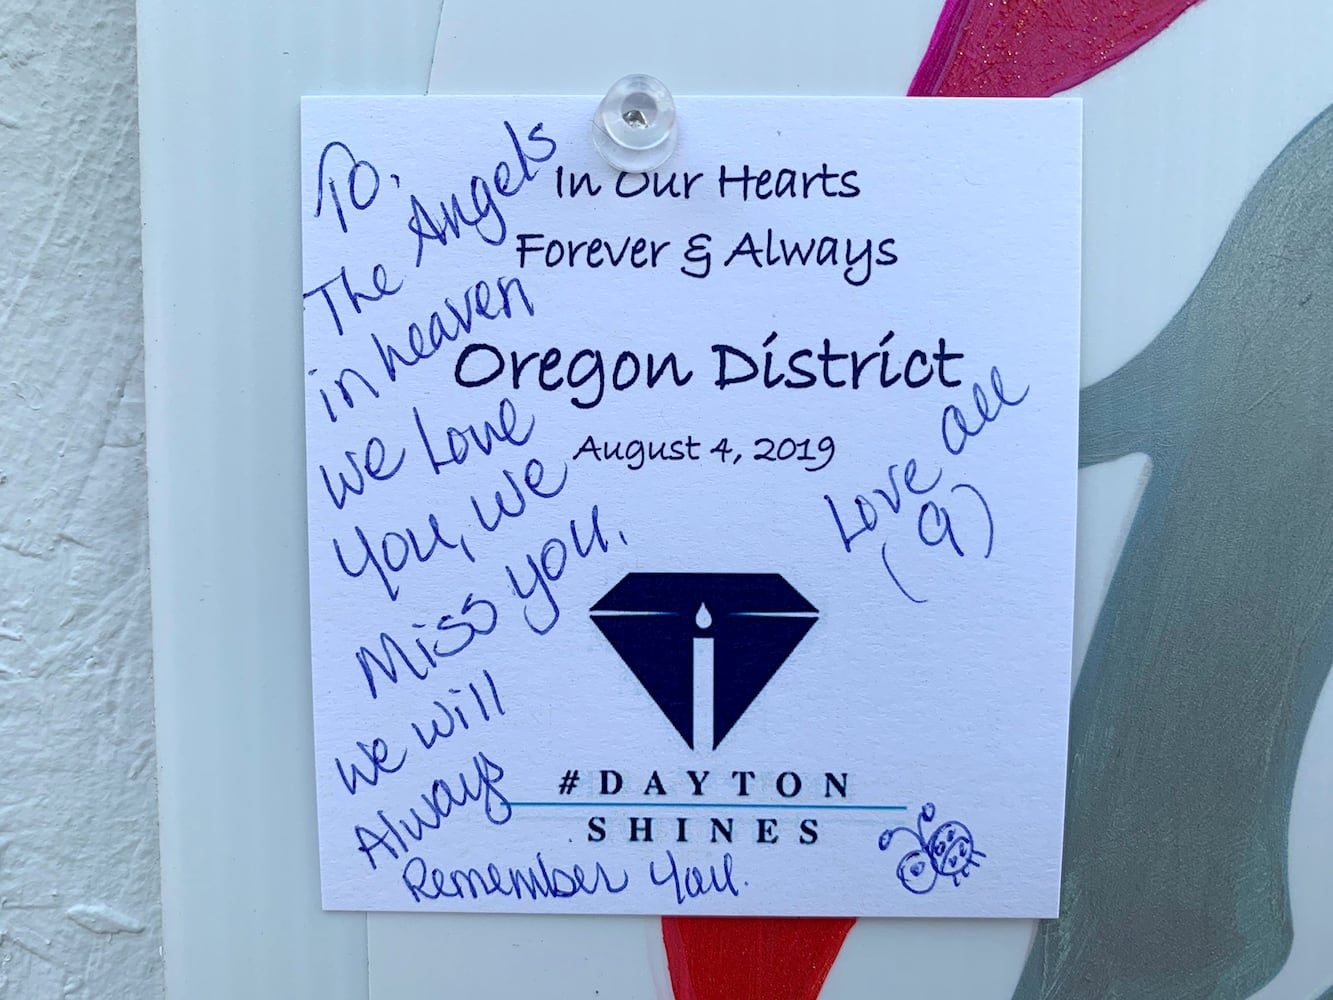 To.
The Angels
in heaven
we Love
you, we
Miss you.
we will
Always
Remember you.
In Our Hearts
Forever & Always
Oregon District
August 4, 2019
Love all
(9)
#DAYTON
SHINES